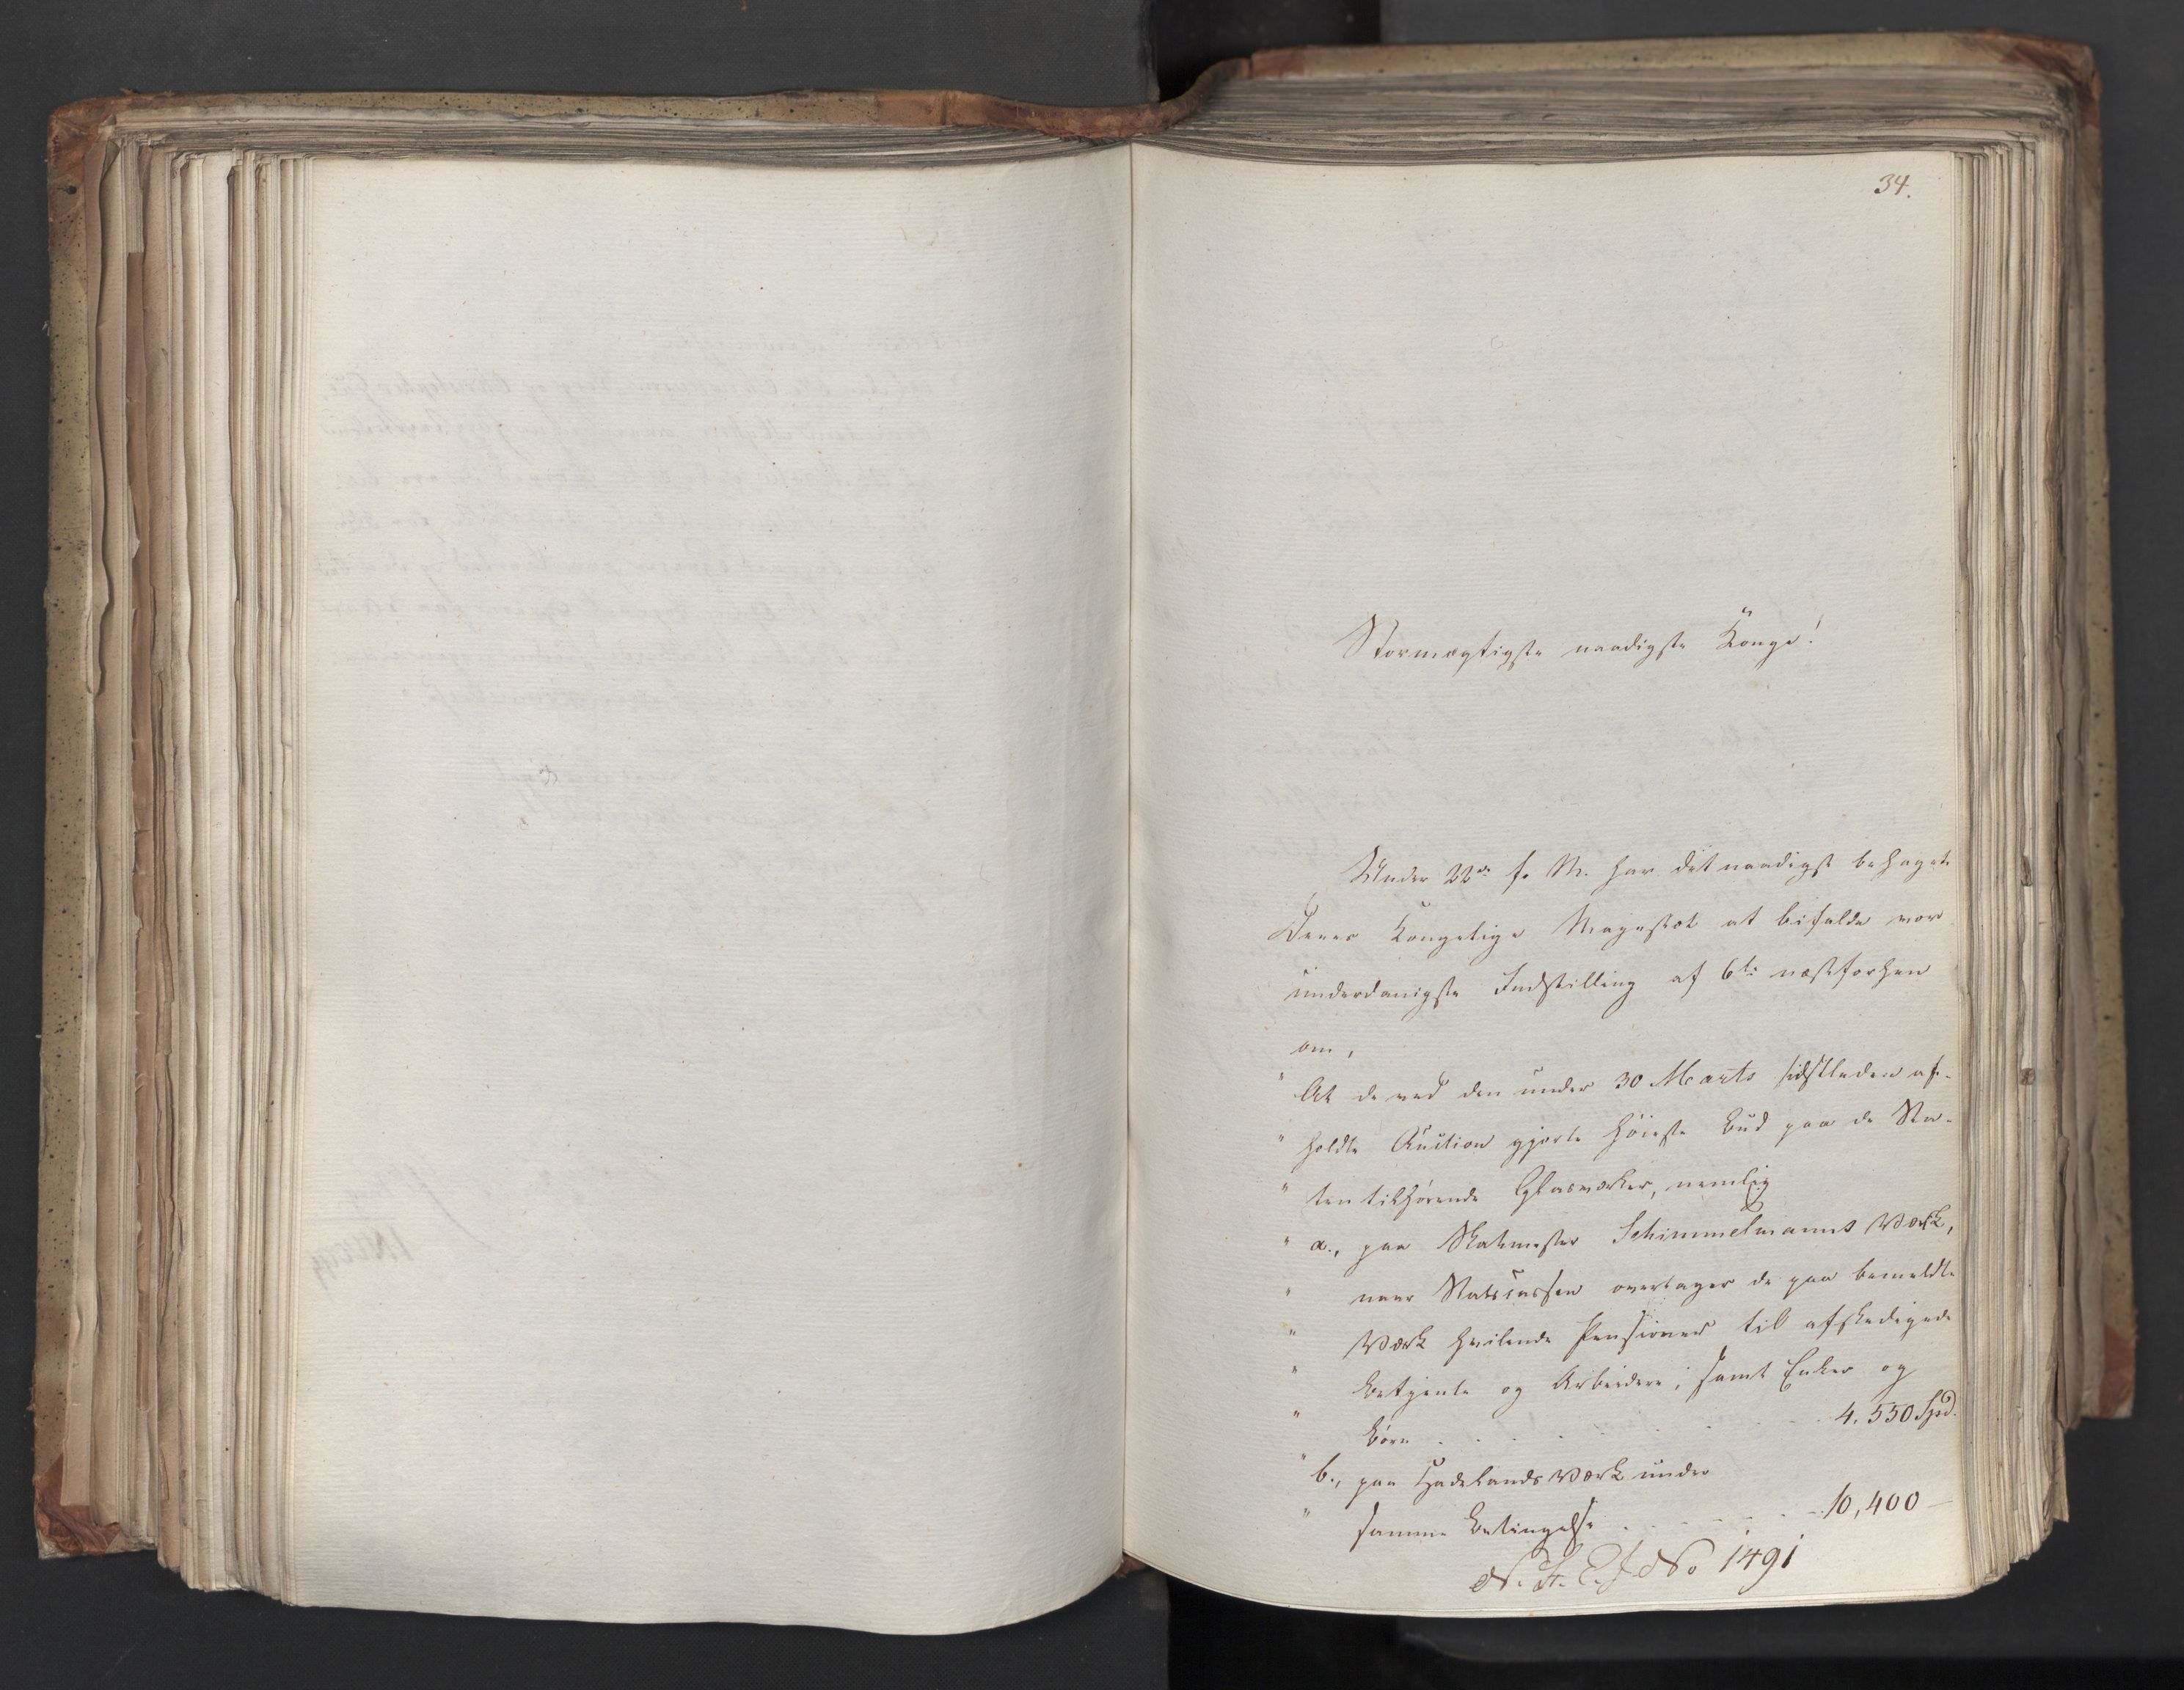 34.
Stormægtigste naadigste Konge!
Under 22de f. M. har det naadigst behaget
Deres Kongelige Majestæt at bifalde vor
underdanigste Indstilling af 6te næstforhen
om,
" At de ved den under 30 Marts sidstleden af-
" holdte Auction gjorte høieste Bud paa de Sta-
" ten tilhørende Glasværker, nemlig
" a., paa Skatmester Schimmelmanns Værk,
" naar Statscassen overtager de paa bemeldte
" Værk hvilende Pensioner til afskedigede
" Betjente og Arbeidere, samt Enker og
" Børn . . . . . . . 4,550 Spd.
" b., paa Hadelands Værk under
" samme Betingelse . . . . . . 10,400 —
No 1491